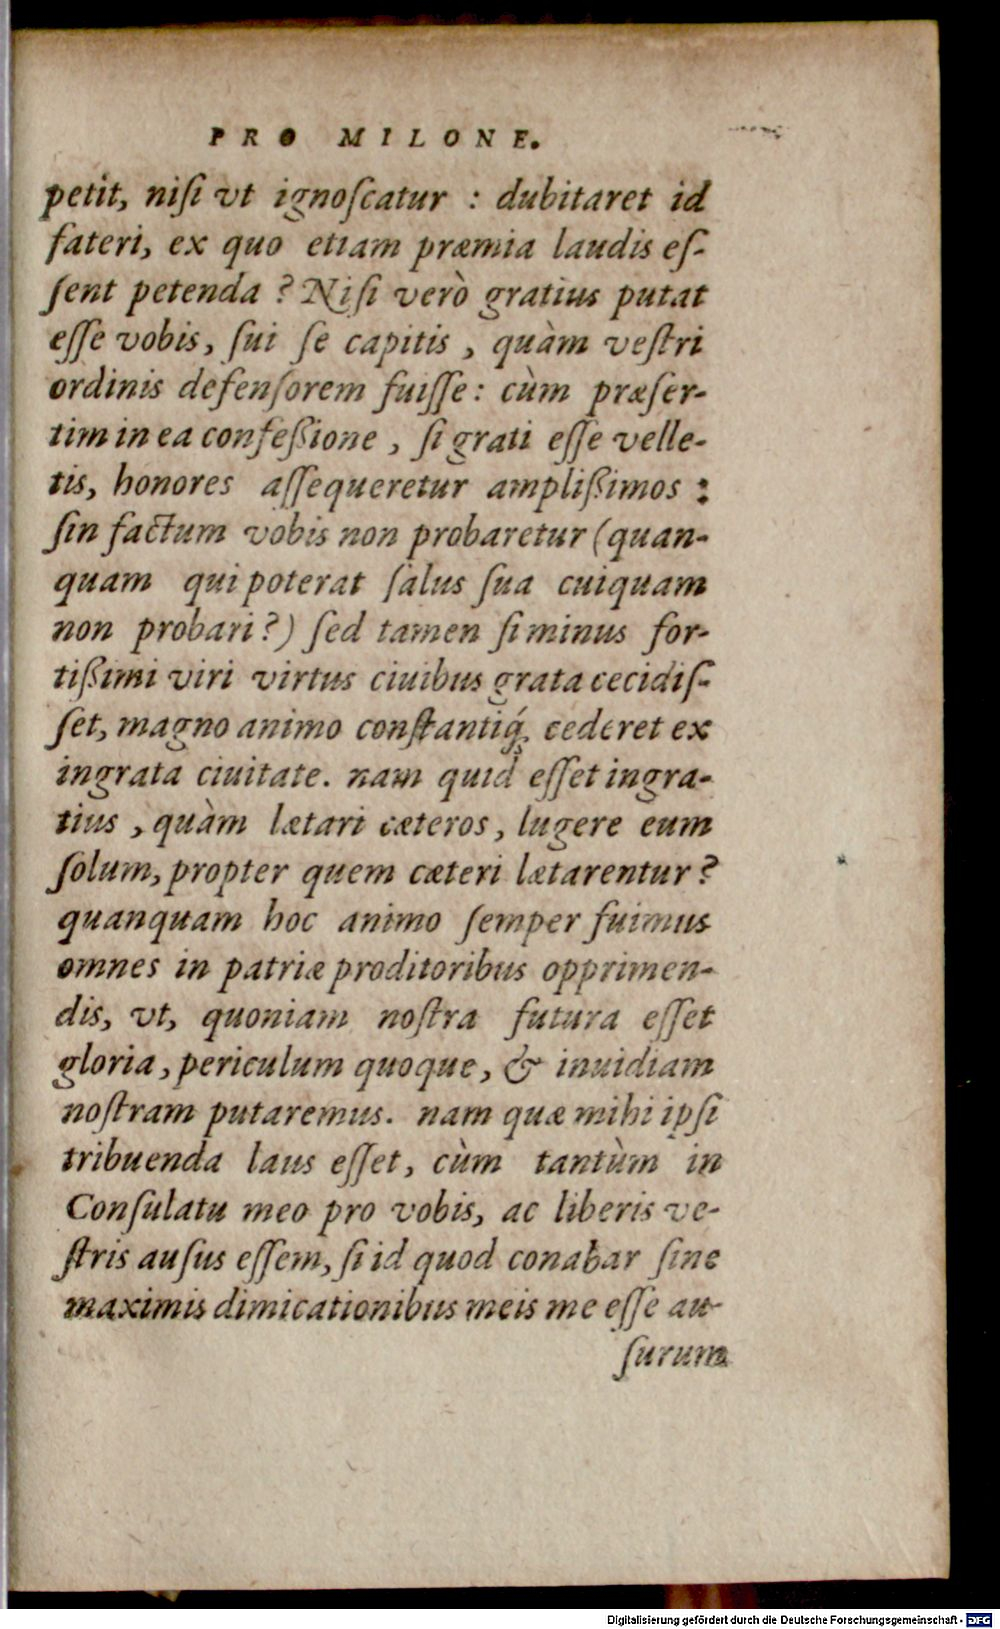 PRO MILONE.
petit, niſi vt ignoſcatur : dubitaret id
fateri, ex quo etiam præmia laudis eſ-
ſent petenda ? Niſi verò gratius putat
eſſe vobis, ſui ſe capitis , quàm veſtri
ordinis defenſorem fuiſſe: cùm præſer-
tim in ea confeßione , ſi grati eſſe velle-
tis, honores aſſequeretur amplißimos :
ſin factum vobis non probaretur (quan-
quam qui poterat ſalus ſua cuiquam
non probari ?) ſed tamen ſi minus for-
tißimi viri virtus ciuibus grata cecidiſ-
ſet, magno animo conſtantiq́; cederet ex
ingrata ciuitate. nam quid eſſet ingra-
tius , quàm lætari cæteros, lugere eum
ſolum, propter quem cæteri lætarentur ?
quanquam hoc animo ſemper fuimus
omnes in patriæ proditoribus opprimen-
dis, vt, quoniam noſtra futura eſſet
gloria, periculum quoque, & inuidiam
noſtram putaremus. nam quæ mihi ipſi
tribuenda laus eſſet, cùm tantùm in
Conſulatu meo pro vobis, ac liberis ve-
ſtris auſus eſſem, ſi id quod conabar ſine
maximis dimicationibus meis me eſſe au-
ſurum
Digitalisierung gefördert durch die Deutsche Forschungsgemeinschaft - DFG